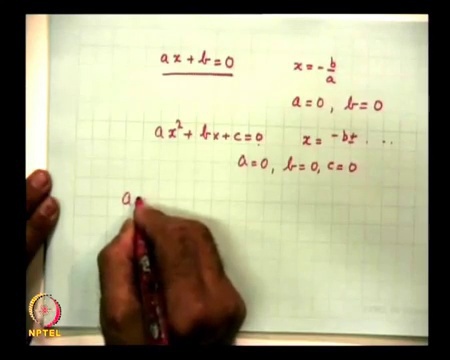 ax + b = 0 x = - b/a
a = 0, b = 0
ax² + bx + c = 0 x = -b± ...
a = 0, b = 0, c = 0
a
NPTEL